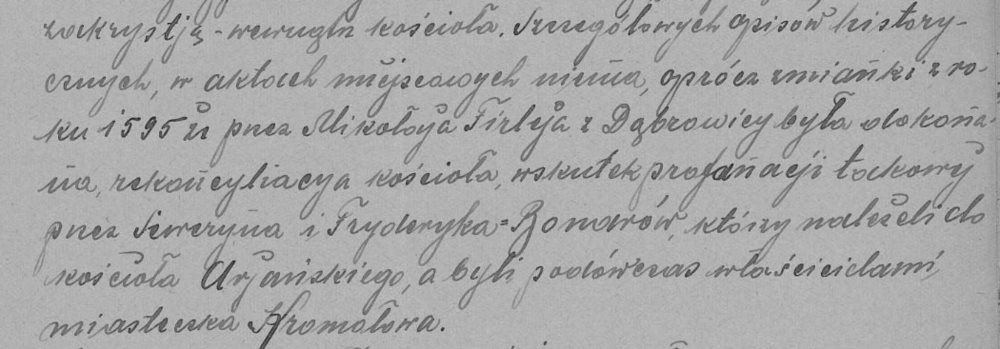 zakrystją - wewnątrz kościoła. Szczegółowych opisów history-
cznych, w aktach miejscowych niema, oprócz zmianki z ro-
ku 1595 że przez Mikołaja Firleja z Dąbrowicy była dokona-
na, rekoncyliacya kościoła, wskutek profanacji takowy
przez Seweryna i Fryderyka=Bonarów, którzy należeli do
kościoła Aryańskiego, a byli podówczas właścicielami,
miasteczka Kromołowa.